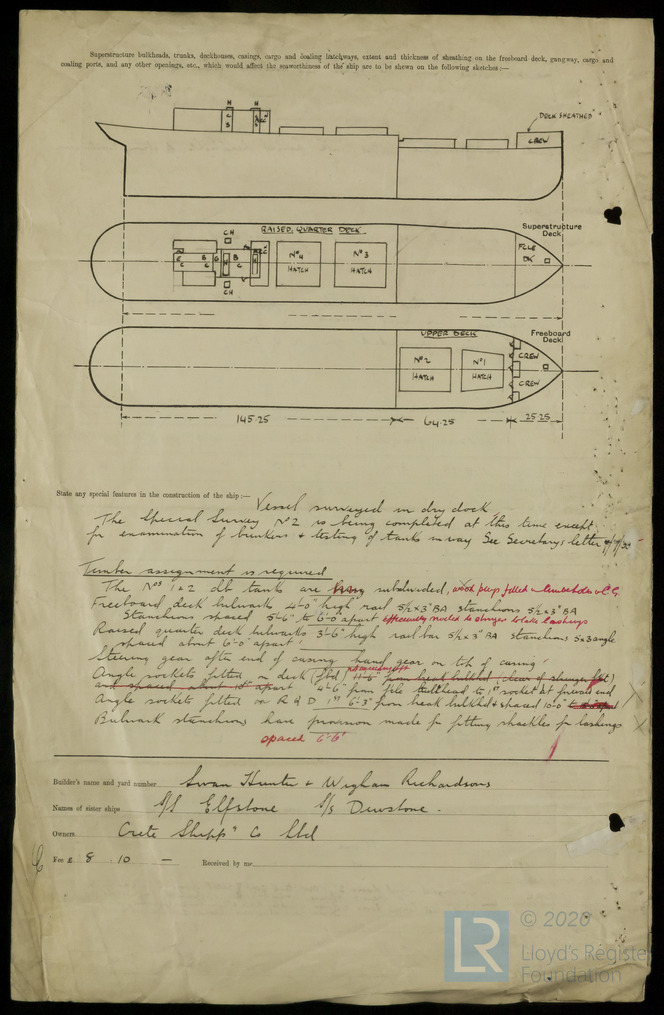 Superstructure bulkheads, trunks, deckhouses, casings, cargo and coaling hatchways, extent and thickness of sheathing on the freeboard deck, gangway, cargo and
coaling ports, and any other openings, etc., which would affect the seaworthiness of the ship are to be shewn on the following sketches:—
H H
DECK SHEATHED
CREW
RAISED QUARTER DECK
CH
Superstructure
Deck
Nº4
HATCH
Nº3
HATCH
F'CLE
DK
CH
UPPER DECK
Freeboard
Deck
Nº2
HATCH
Nº1
HATCH
CREW
CREW
145·25
64·25
25·25
State any special features in the construction of the ship:— Vessel surveyed in dry dock.
The Special Survey Nº2 is being completed at this time except
for examination of bunkers & testing of tanks in way See Secretary's letter
Timber assignment is required
The Nos 1 & 2 db tanks are subdivided,
Freeboard deck bulwarks 4'-0" high rail 5½ x 3" BA stanchions 5½ x 3" BA
Stanchions spaced 5'-6" to 6'-0" apart efficiently riveted to
Raised quarter deck bulwarks 3'-6" high rail bar 5½ x 3" BA stanchions 5 x 3 angle
spaced about 6'-0" apart
Steering gear after end of casing hand gear on top of casing
Angle sockets fitted on deck (fbd) 11'-6" from break bulkhd (clear of
and spaced about 10' apart 4'-6" from f'cle bulkhead to 1st socket at forward end
Angle sockets fitted on R Q D 1st 6'-3" from break bulkhd & spaced 10'-0"
Bulwark stanchions have provision made for fitting shackles for lashings
spaced 6'-6"
Builder's name and yard number Swan Hunter & Wigham Richardsons
Names of sister ships S/S Elfstone S/s Dewstone.
Owners Crete Shipp⁹ Co Ltd
Fee £ 8 : 10 — Received by me
LR
© 2020
Lloyd's Register
Foundation